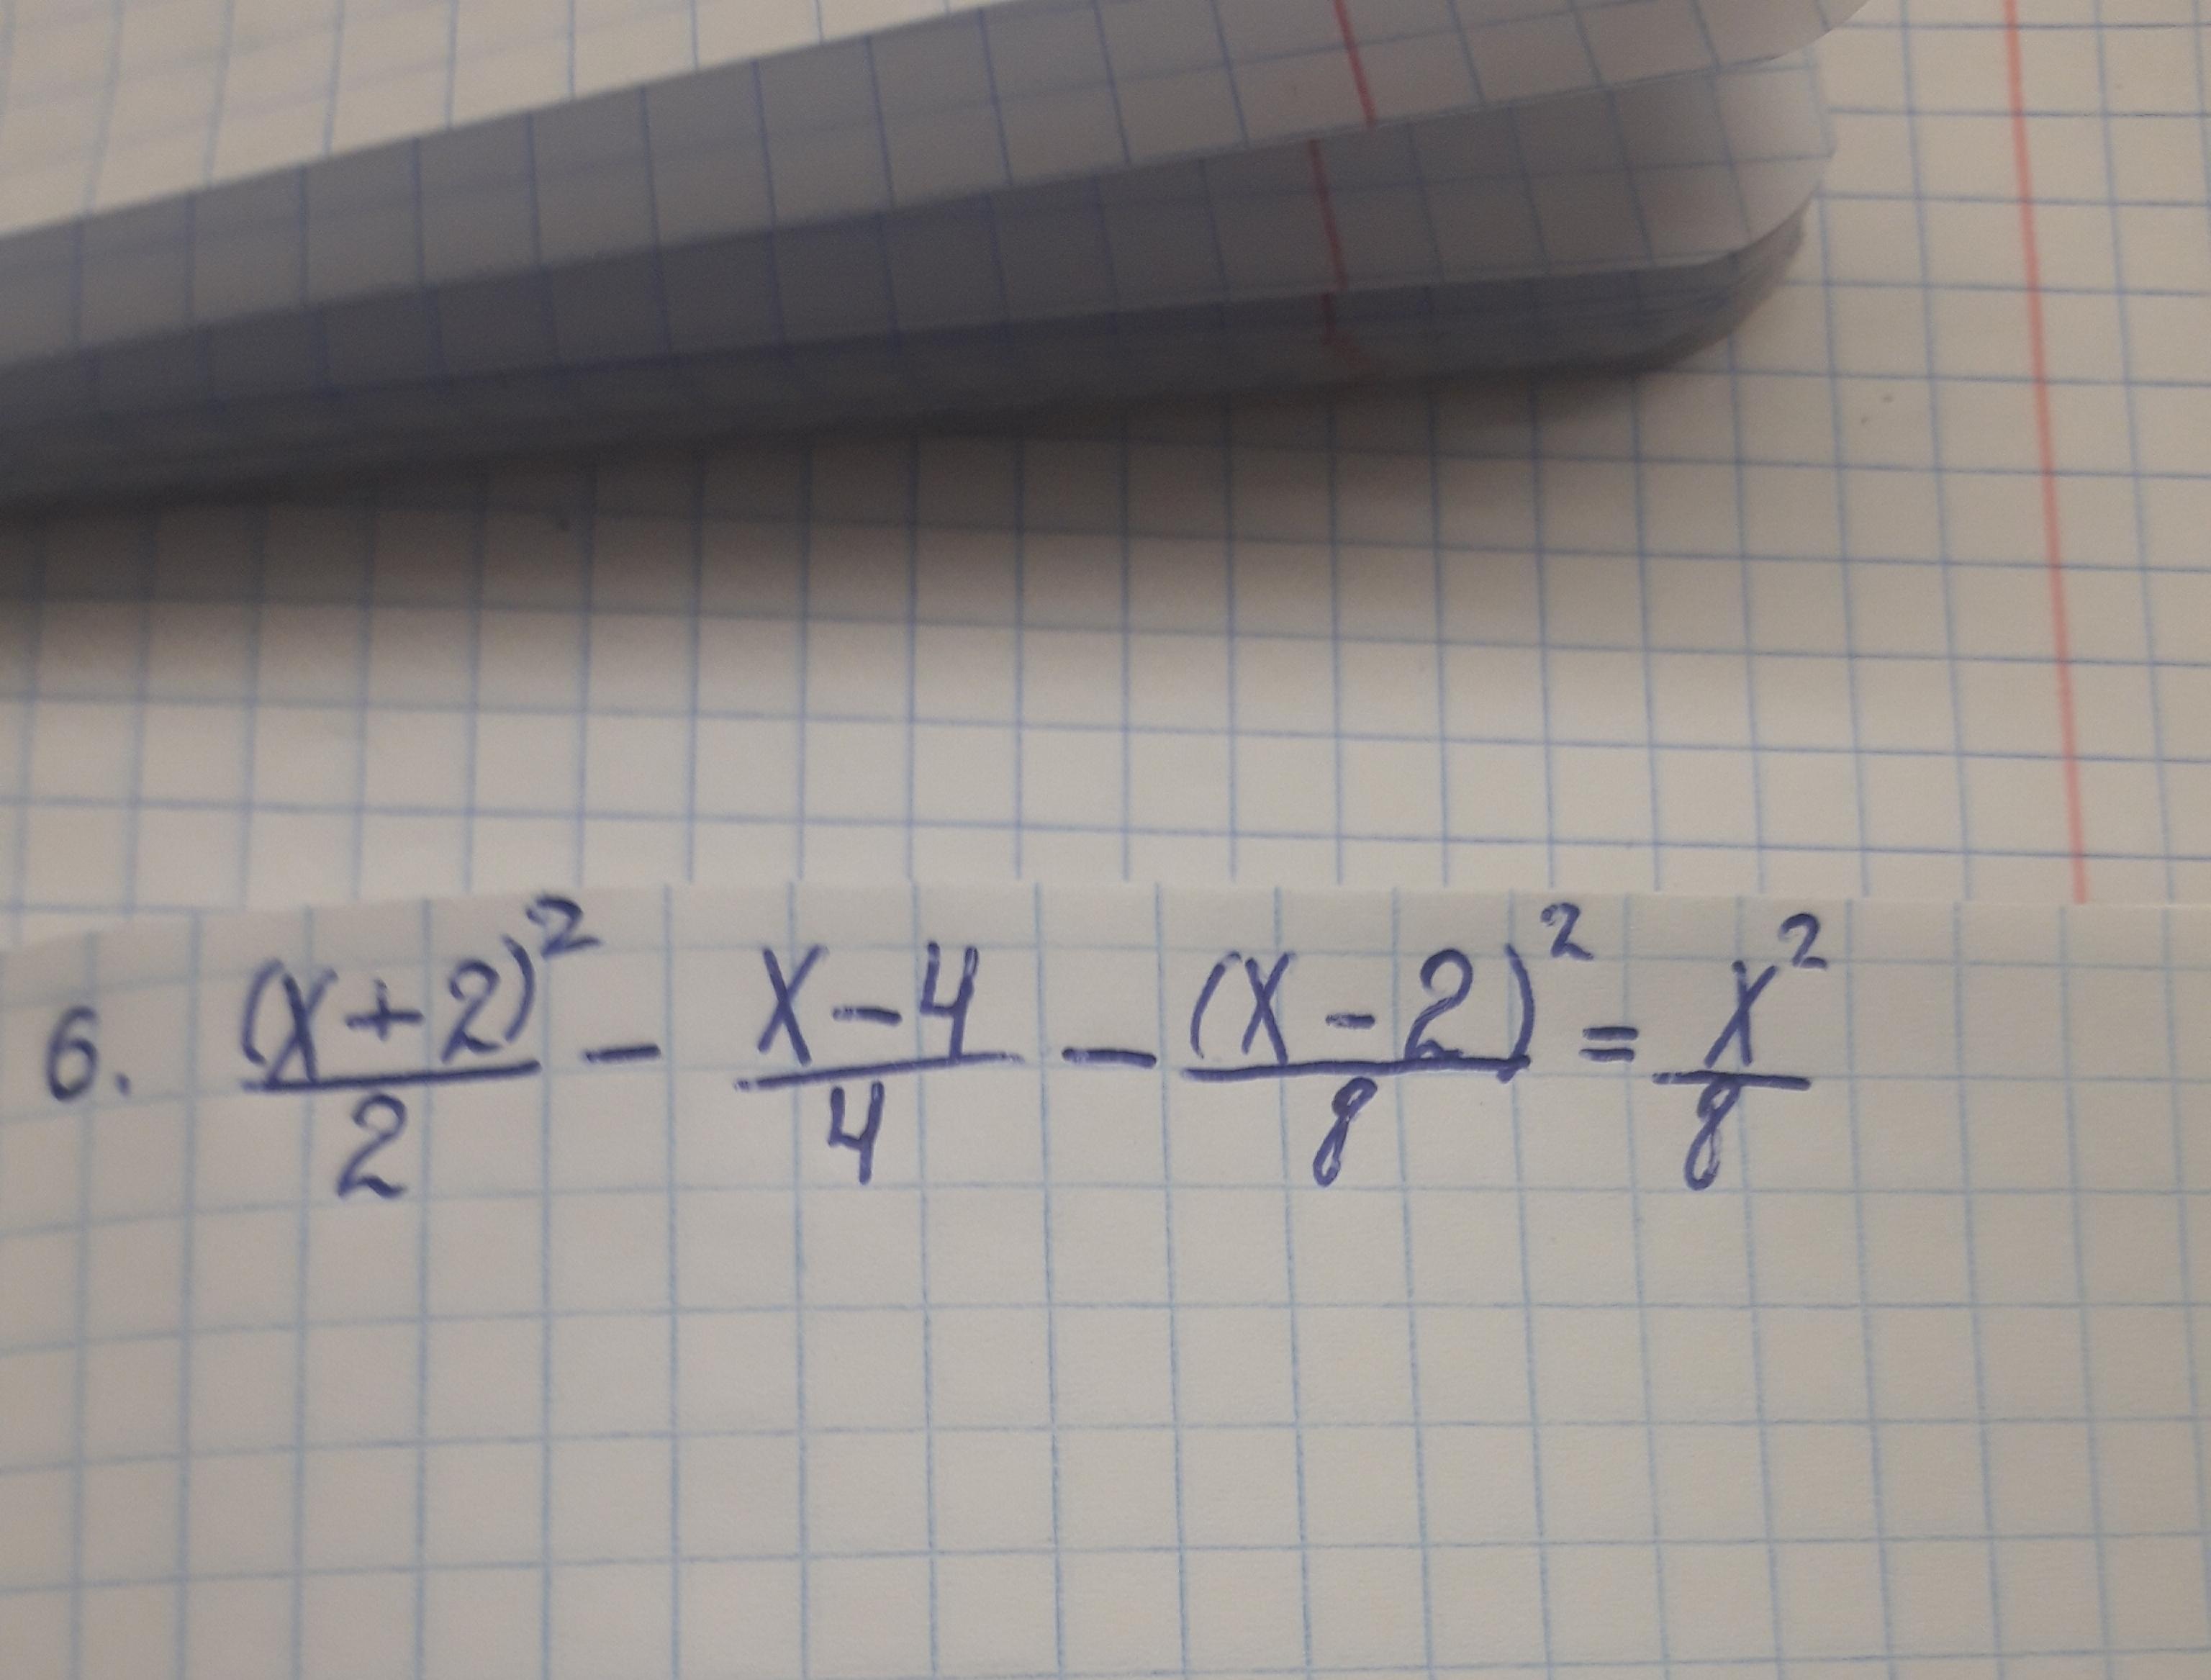 6. (x+2)²/2 - x-4/4 - (x-2)²/8 = x²/8